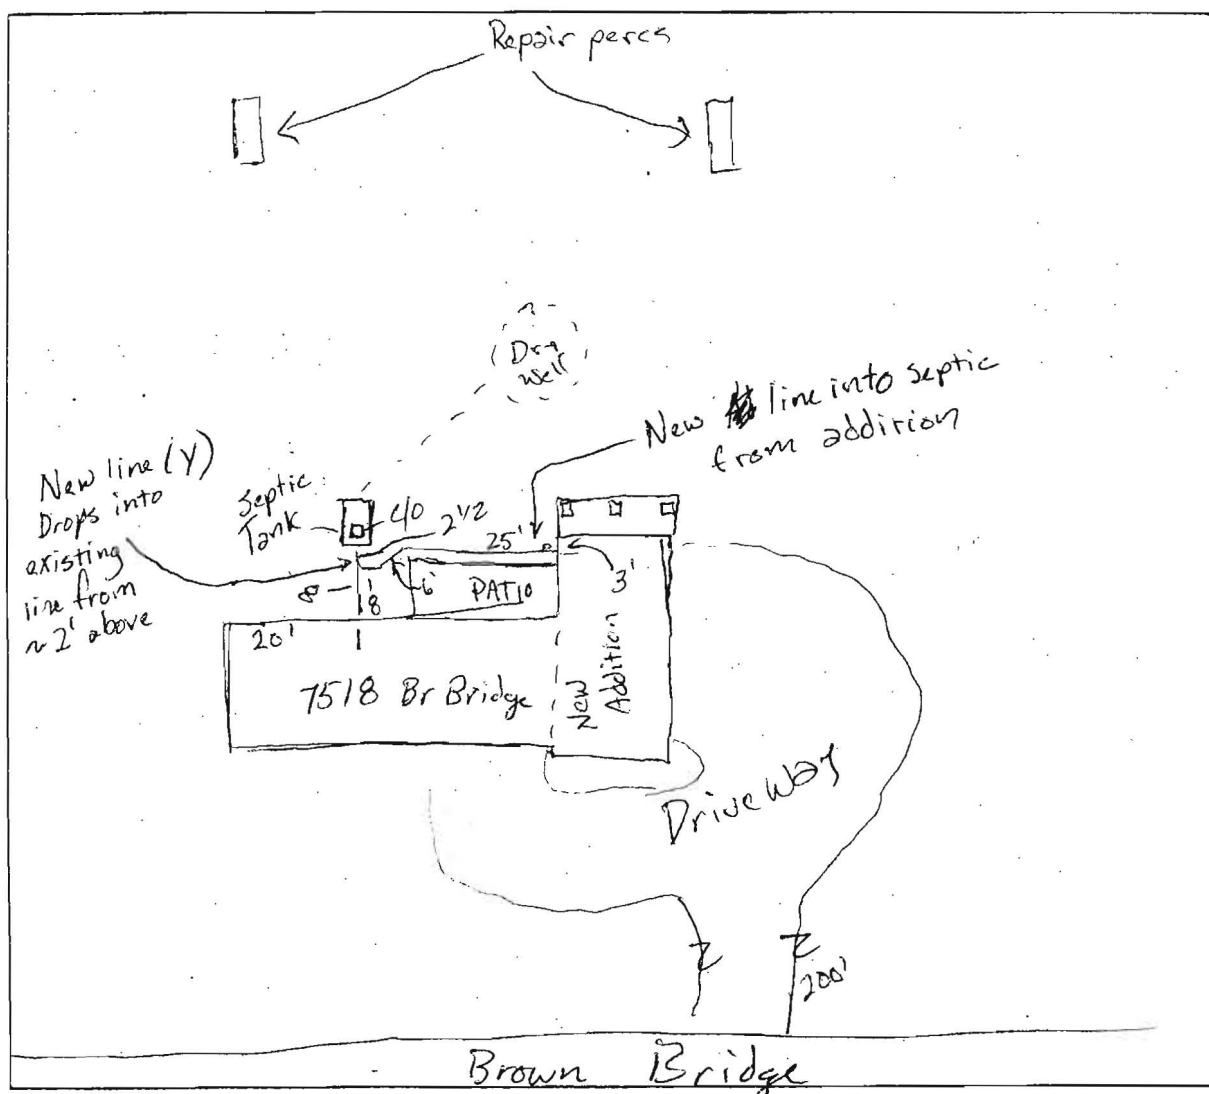 Repair percs
Dry
Well
New line into septic
from addition
New line (Y)
Drops into
existing
line from
~ 2' above
Septic
Tank
C/O
2 1/2
25'
3'
6'
8'
8
PATIO
20'
7518 Br Bridge
New
Addition
DriveWay
200'
Brown Bridge